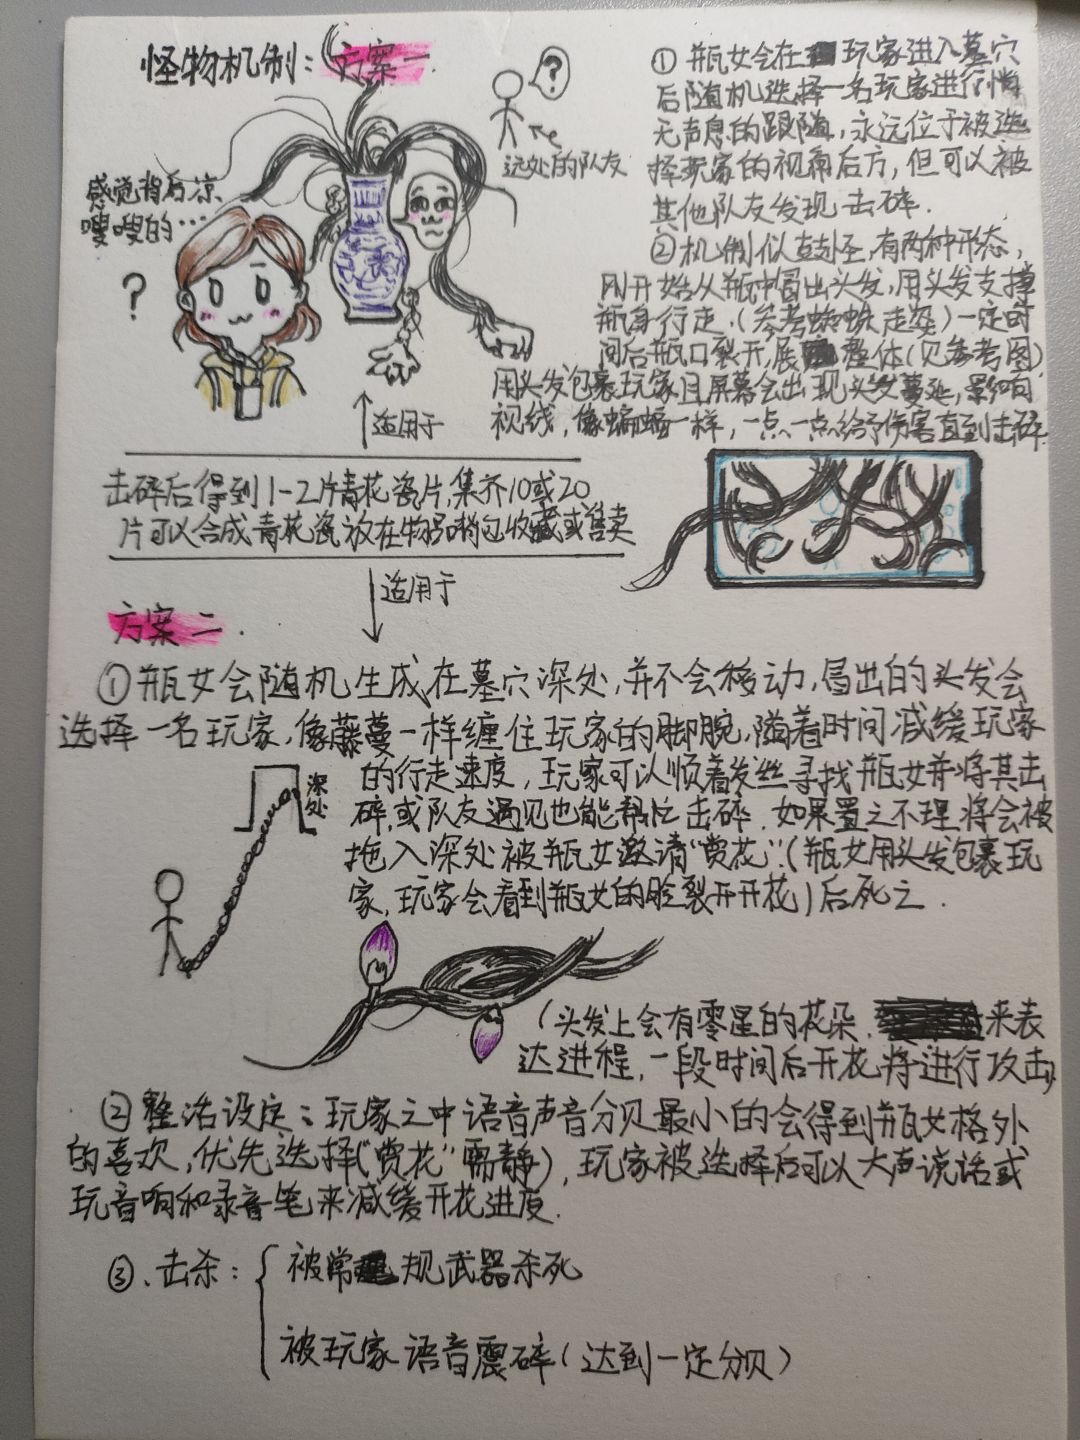 怪物机制：方案一
?
远处的队友
感觉背后凉
嗖嗖的…
?
①瓶女会在玩家进入墓穴
后随机选择一名玩家进行悄
无声息的跟随，永远位于被选
择玩家的视角后方，但可以被
其他队友发现击碎.
②机制似，有两种形态，
刚开始从瓶中冒出头发，用头发支撑
瓶身行走.(参考蜘蛛走姿)一定时
间后瓶口裂开，展整体(见参考图)
用头发包裹玩家且屏幕会出现头发蔓延，影响
视线，像蝙蝠一样，一点一点给予伤害直到击碎.
适用于
击碎后得到1-2片青花瓷片，集齐10或20
片可以合成青花瓷放在物品背包收藏或售卖
适用于
方案二.
①瓶女会随机生成在墓穴深处，并不会移动，冒出的头发会
选择一名玩家，像藤蔓一样缠住玩家的脚腕，随着时间减缓玩家
的行走速度，玩家可以顺着发丝寻找瓶女并将其击
碎，或队友遇见也能帮忙击碎.如果置之不理将会被
拖入深处被瓶女邀请"赏花".(瓶女用头发包裹玩
家，玩家会看到瓶女的脸裂开开花)后死之.
深处
(头发上会有零星的花朵.来表
达进程，一段时间后开花将进行攻击)
②整活设定：玩家之中语音声音分贝最小的会得到瓶女格外
的喜欢，优先选择("赏花"需静)，玩家被选择后可以大声说话或
玩音响和录音笔来减缓开花进度.
③.击杀：
被常规武器杀死
被玩家语音震碎(达到一定分贝)